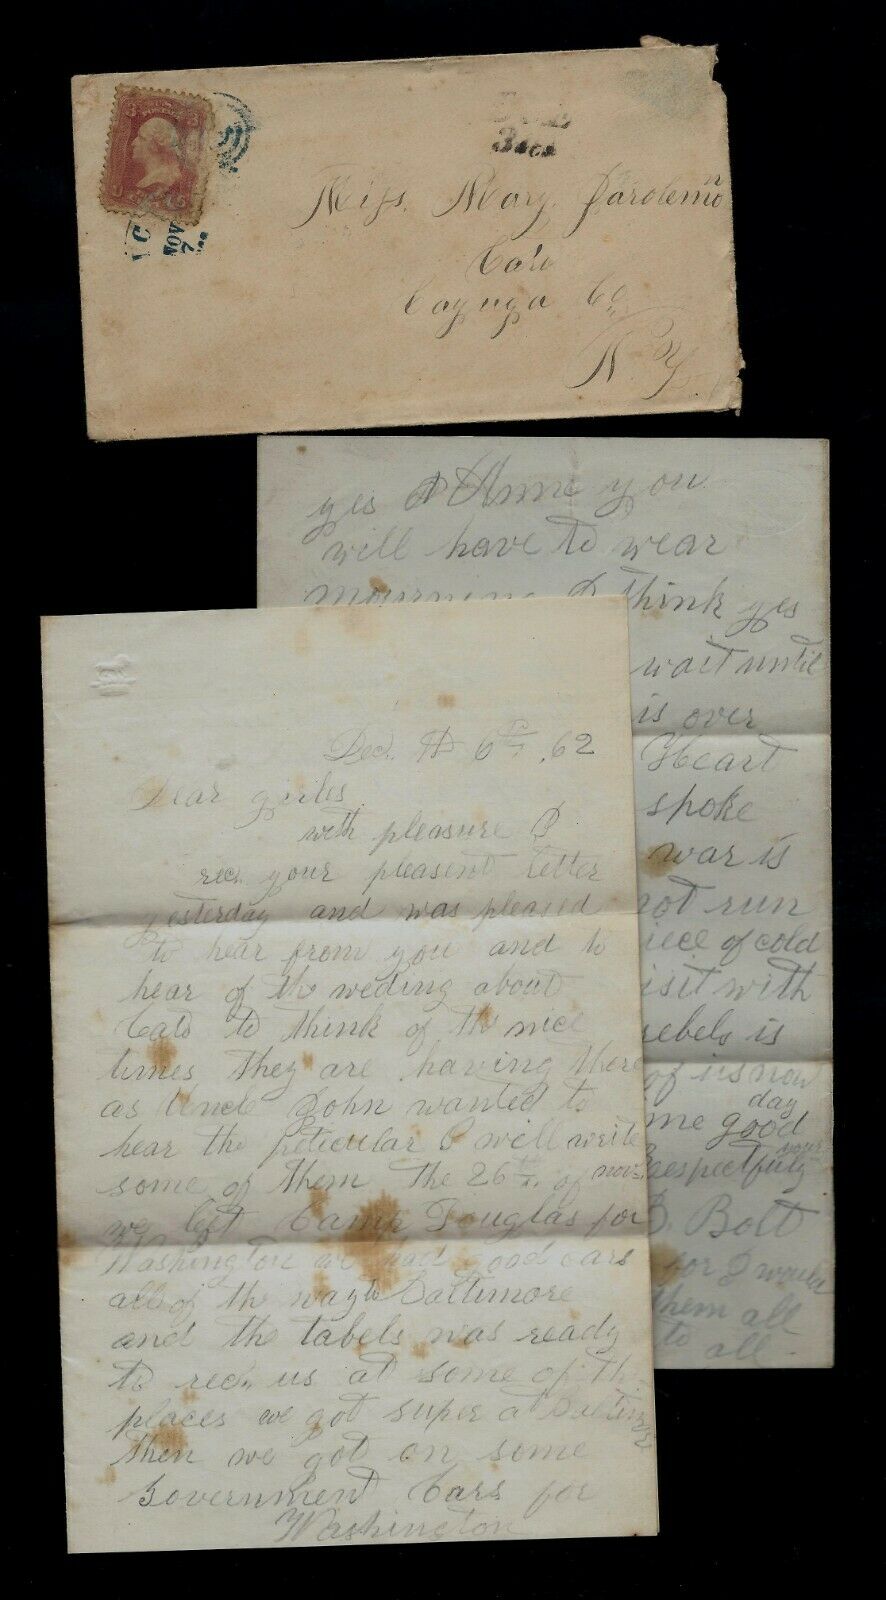 3 3
NOV
7
Due
3 cts
Miss. Mary.
Cato
Cayuga Co
N. Y.
yes Anne you
will have to wear
mourning I think yes
wait until
is over
Heart
spoke
war is
not run
piece of cold
visit with
rebels is
of us now
day
me good
your
Respectfuly
B. Bolt
for I would
them all
to all
Dec. 6th, 62
Dear girles
with pleasure I
recd. your pleasent letter
yesterday and was pleased
to hear from you and to
hear of the weding about
Cato to think of the nice
times they are having there
as Uncle John wanted to
hear the peticular I will write
some of them The 26th of nov.
we left Camp Douglas for
Washington we had good cars
all of the way to Baltimore
and the tabels was ready
to recd. us at some of the
places we got super at Baltimore
then we got on some
Government Cars for
Washington